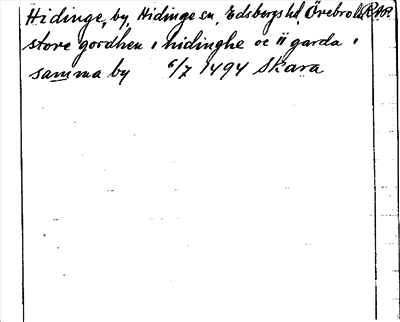 Hidinge, by, Hidinge sn, Edsbergs hd, Örebro l. RAP.
store gordhen i hidinghe oc ii garda i
samma by 6/7 1494 Skara